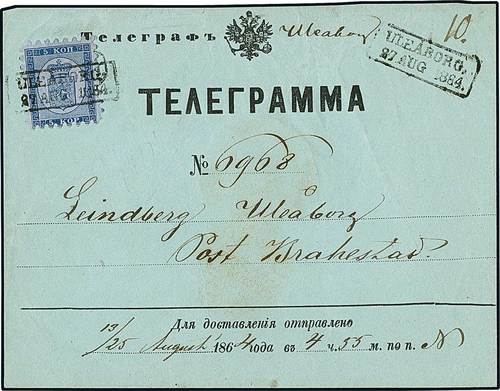 Телеграфъ Uleaborg. 10.
5. КОП.
ULEÅBORG.
27 AUG 1864.
5. КОР.
ULEÅBORG.
27 AUG 1864.
ТЕЛЕГРАММА
№ 6968
Leindberg Uleaborg
Post Brahestad.
Для доставленія отправлено
13/25 August 1864 года въ 4 ч. 55 м. по п. N